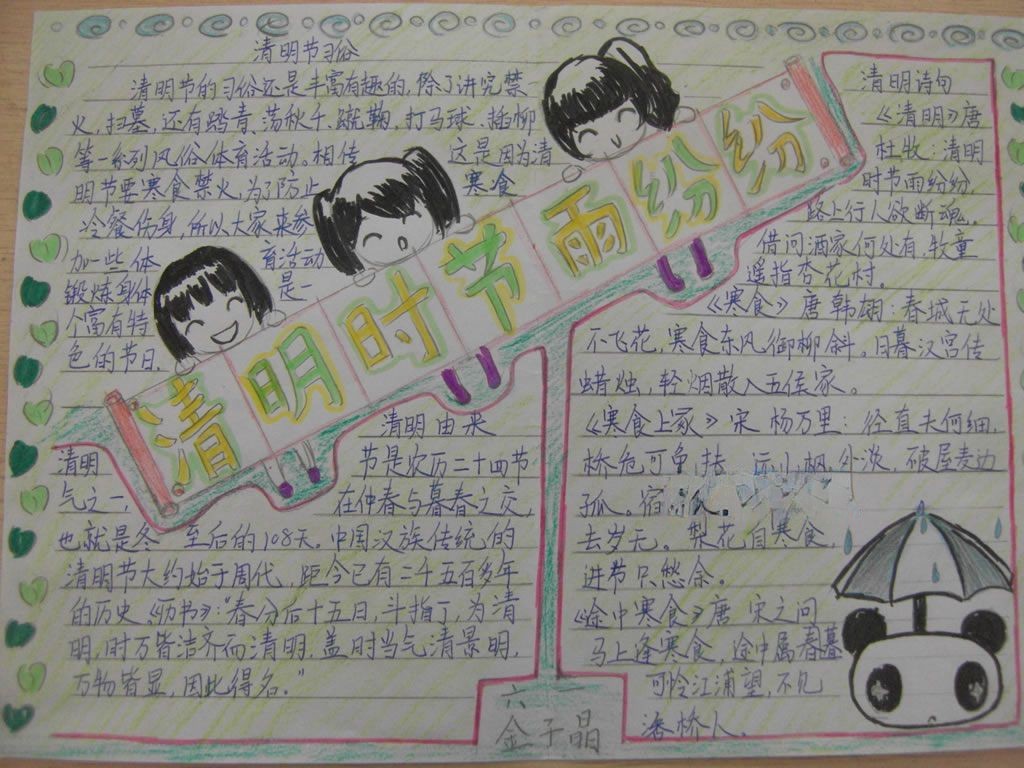 清明时节雨纷纷
清明节习俗
清明节的习俗还是丰富有趣的,除了讲究禁
火、扫墓,还有踏青、荡秋千、蹴鞠、打马球、插柳
等一系列风俗体育活动。相传 这是因为清
明节要寒食禁火,为了防止 寒食
冷餐伤身,所以大家来参
加一些体 育活动
锻炼身体 是一
个富有特
色的节日.
清明由来
清明 节是农历二十四节
气之一, 在仲春与暮春之交,
也就是冬 至后的108天。中国汉族传统的
清明节大约始于周代,距今已有二千五百多年
的历史.《历书》:“春分后十五日,斗指丁,为清
明,时万皆洁齐而清明,盖时当气清景明,
万物皆显,因此得名。”
清明诗句
《清明》唐
杜牧:清明
时节雨纷纷
路上行人欲断魂。
借问酒家何处有,牧童
遥指杏花村。
《寒食》唐 韩翃:春城无处
不飞花,寒食东风御柳斜。日暮汉宫传
蜡烛,轻烟散入五侯家。
《寒食上冢》宋 杨万里:径直夫何细,
桥危可免扶 远山枫外淡,破屋麦边
孤。宿
去岁无。梨花自寒食,
进节只愁余。
《途中寒食》唐 宋之问
马上逢寒食,途中属暮春
可怜江浦望,不见
洛桥人.
六 一
金子晶